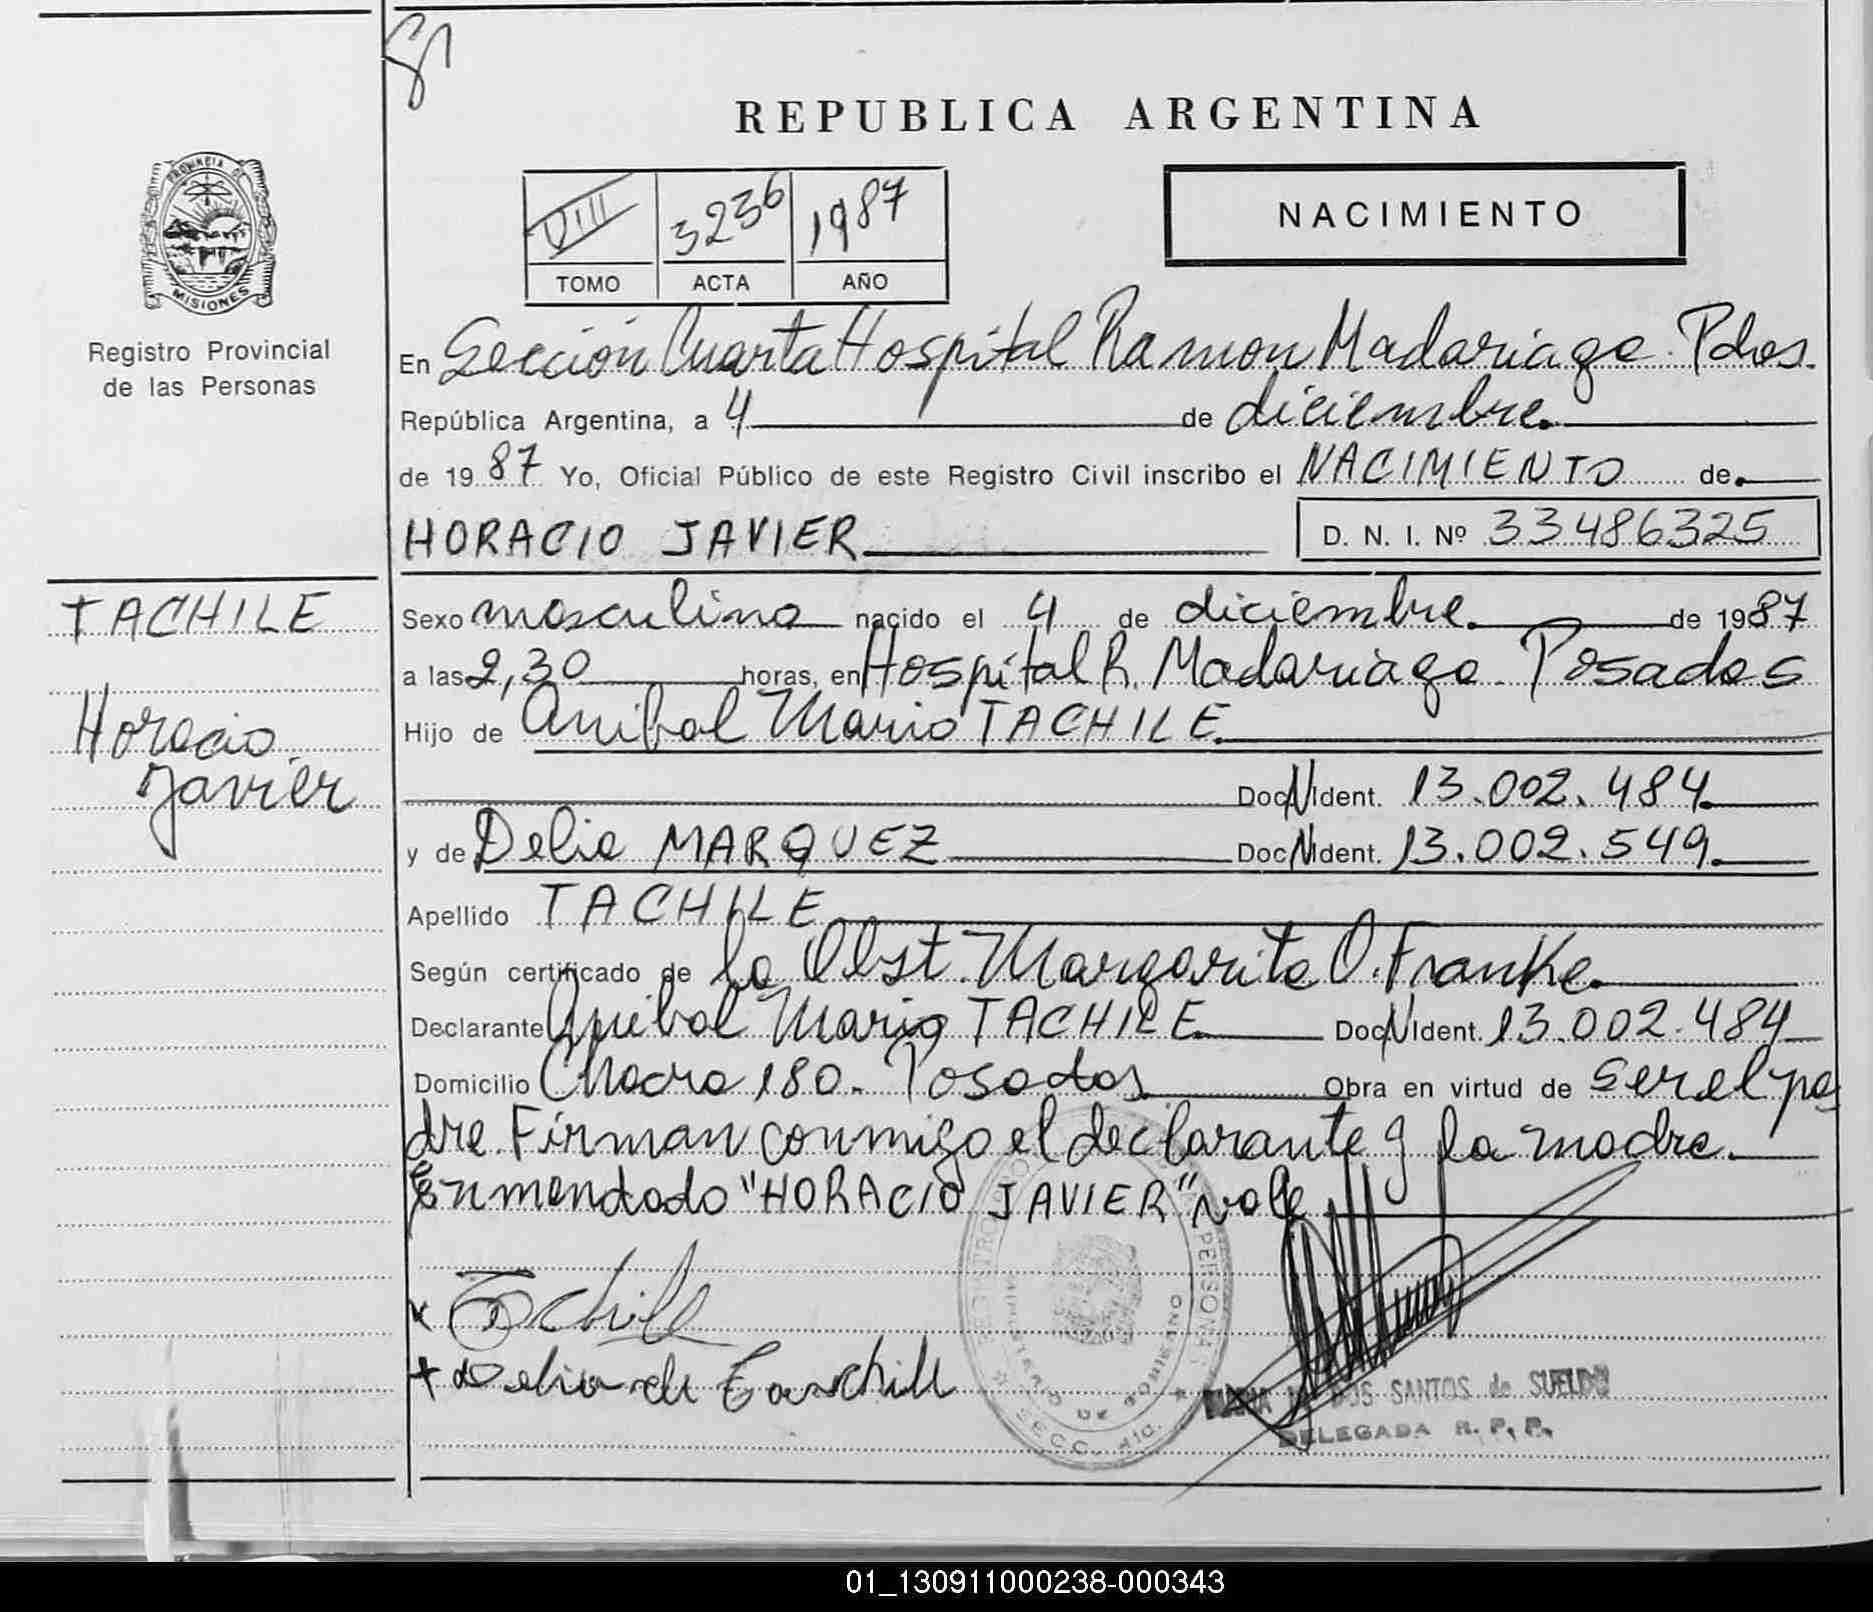 REPUBLICA ARGENTINA
PROVINCIA DE
MISIONES
Registro Provincial
de las Personas
VIII 3236 1987
TOMO ACTA AÑO
NACIMIENTO
En Sección Cuarta Hospital Ramon Madariaga. Pdas.
República Argentina, a 4 de diciembre.
de 1987 Yo, Oficial Público de este Registro Civil inscribo el NACIMIENTO de
HORACIO JAVIER D. N. I. Nº 33486325
TACHILE
Horacio
Javier
Sexo masculino nacido el 4 de diciembre. de 1987
a las 2,30 horas, en Hospital R. Madariaga. Posadas
Hijo de Anibal Mario TACHILE.
Doc N Ident. 13.002.484
y de Delia MARQUEZ Doc N Ident. 13.002.549.
Apellido TACHILE
Según certificado de la Obst. Margarita O. Franke.
Declarante Anibal Mario TACHILE Doc N Ident. 13.002.484
Domicilio Chacra 180. Posadas Obra en virtud de ser el pa
dre. Firman conmigo el declarante y la madre.
Enmendado "HORACIO JAVIER" vale
x Tachile
+ Delia de Tachile
DOS SANTOS de SUELDO
DELEGADA R. P. P.
01_130911000238-000343